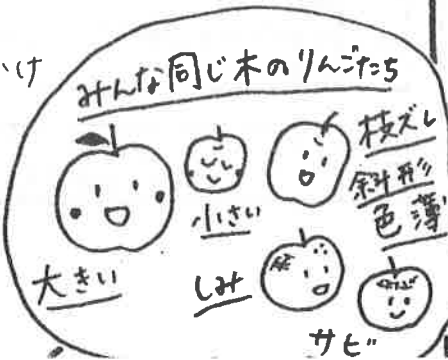 いけ
みんな同じ木のりんごたち
枝ズレ
斜形
色薄
小さい
大きい
しみ
サビ